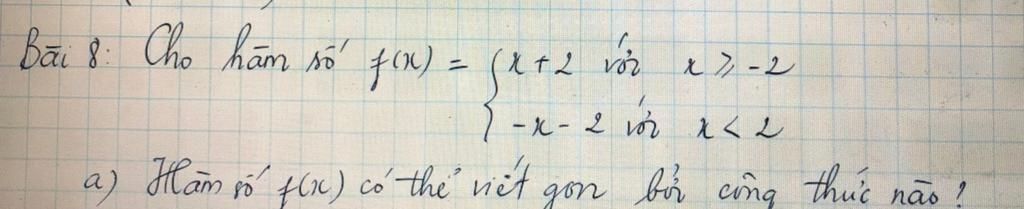 Bài 8: Cho hàm số f(x) = { x + 2 với x ⩾ -2
-x - 2 với x < 2
a) Hàm số f(x) có thể viết gọn bởi công thức nào?